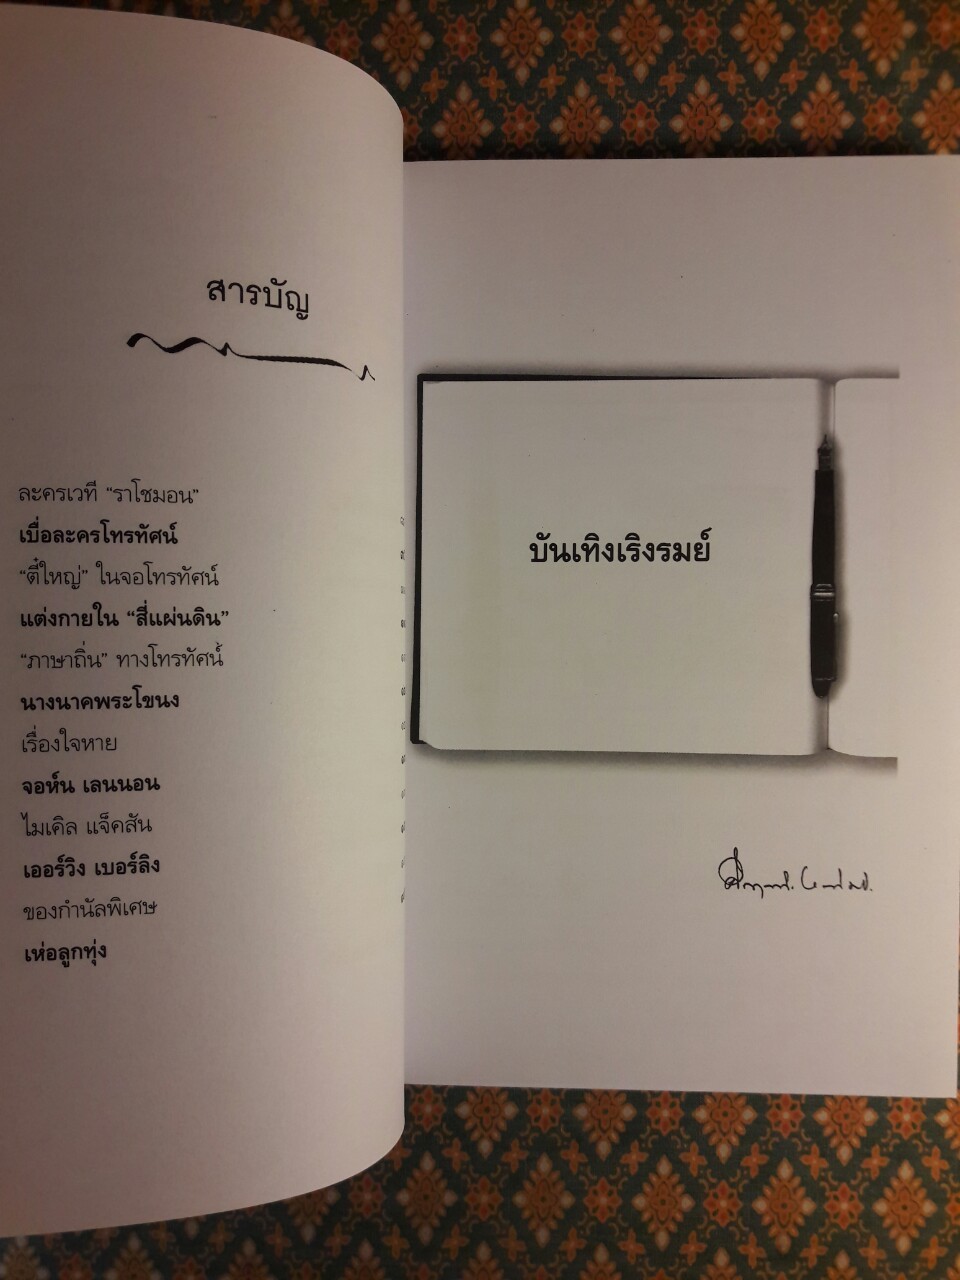 สารบัญ
ละครเวที “ราโชมอน”
เบื่อละครโทรทัศน์
“ตี๋ใหญ่” ในจอโทรทัศน์
แต่งกายใน “สี่แผ่นดิน”
“ภาษาถิ่น” ทางโทรทัศน์
นางนาคพระโขนง
เรื่องใจหาย
จอห์น เลนนอน
ไมเคิล แจ็คสัน
เออร์วิง เบอร์ลิง
ของกำนัลพิเศษ
เห่อลูกทุ่ง
บันเทิงเริงรมย์